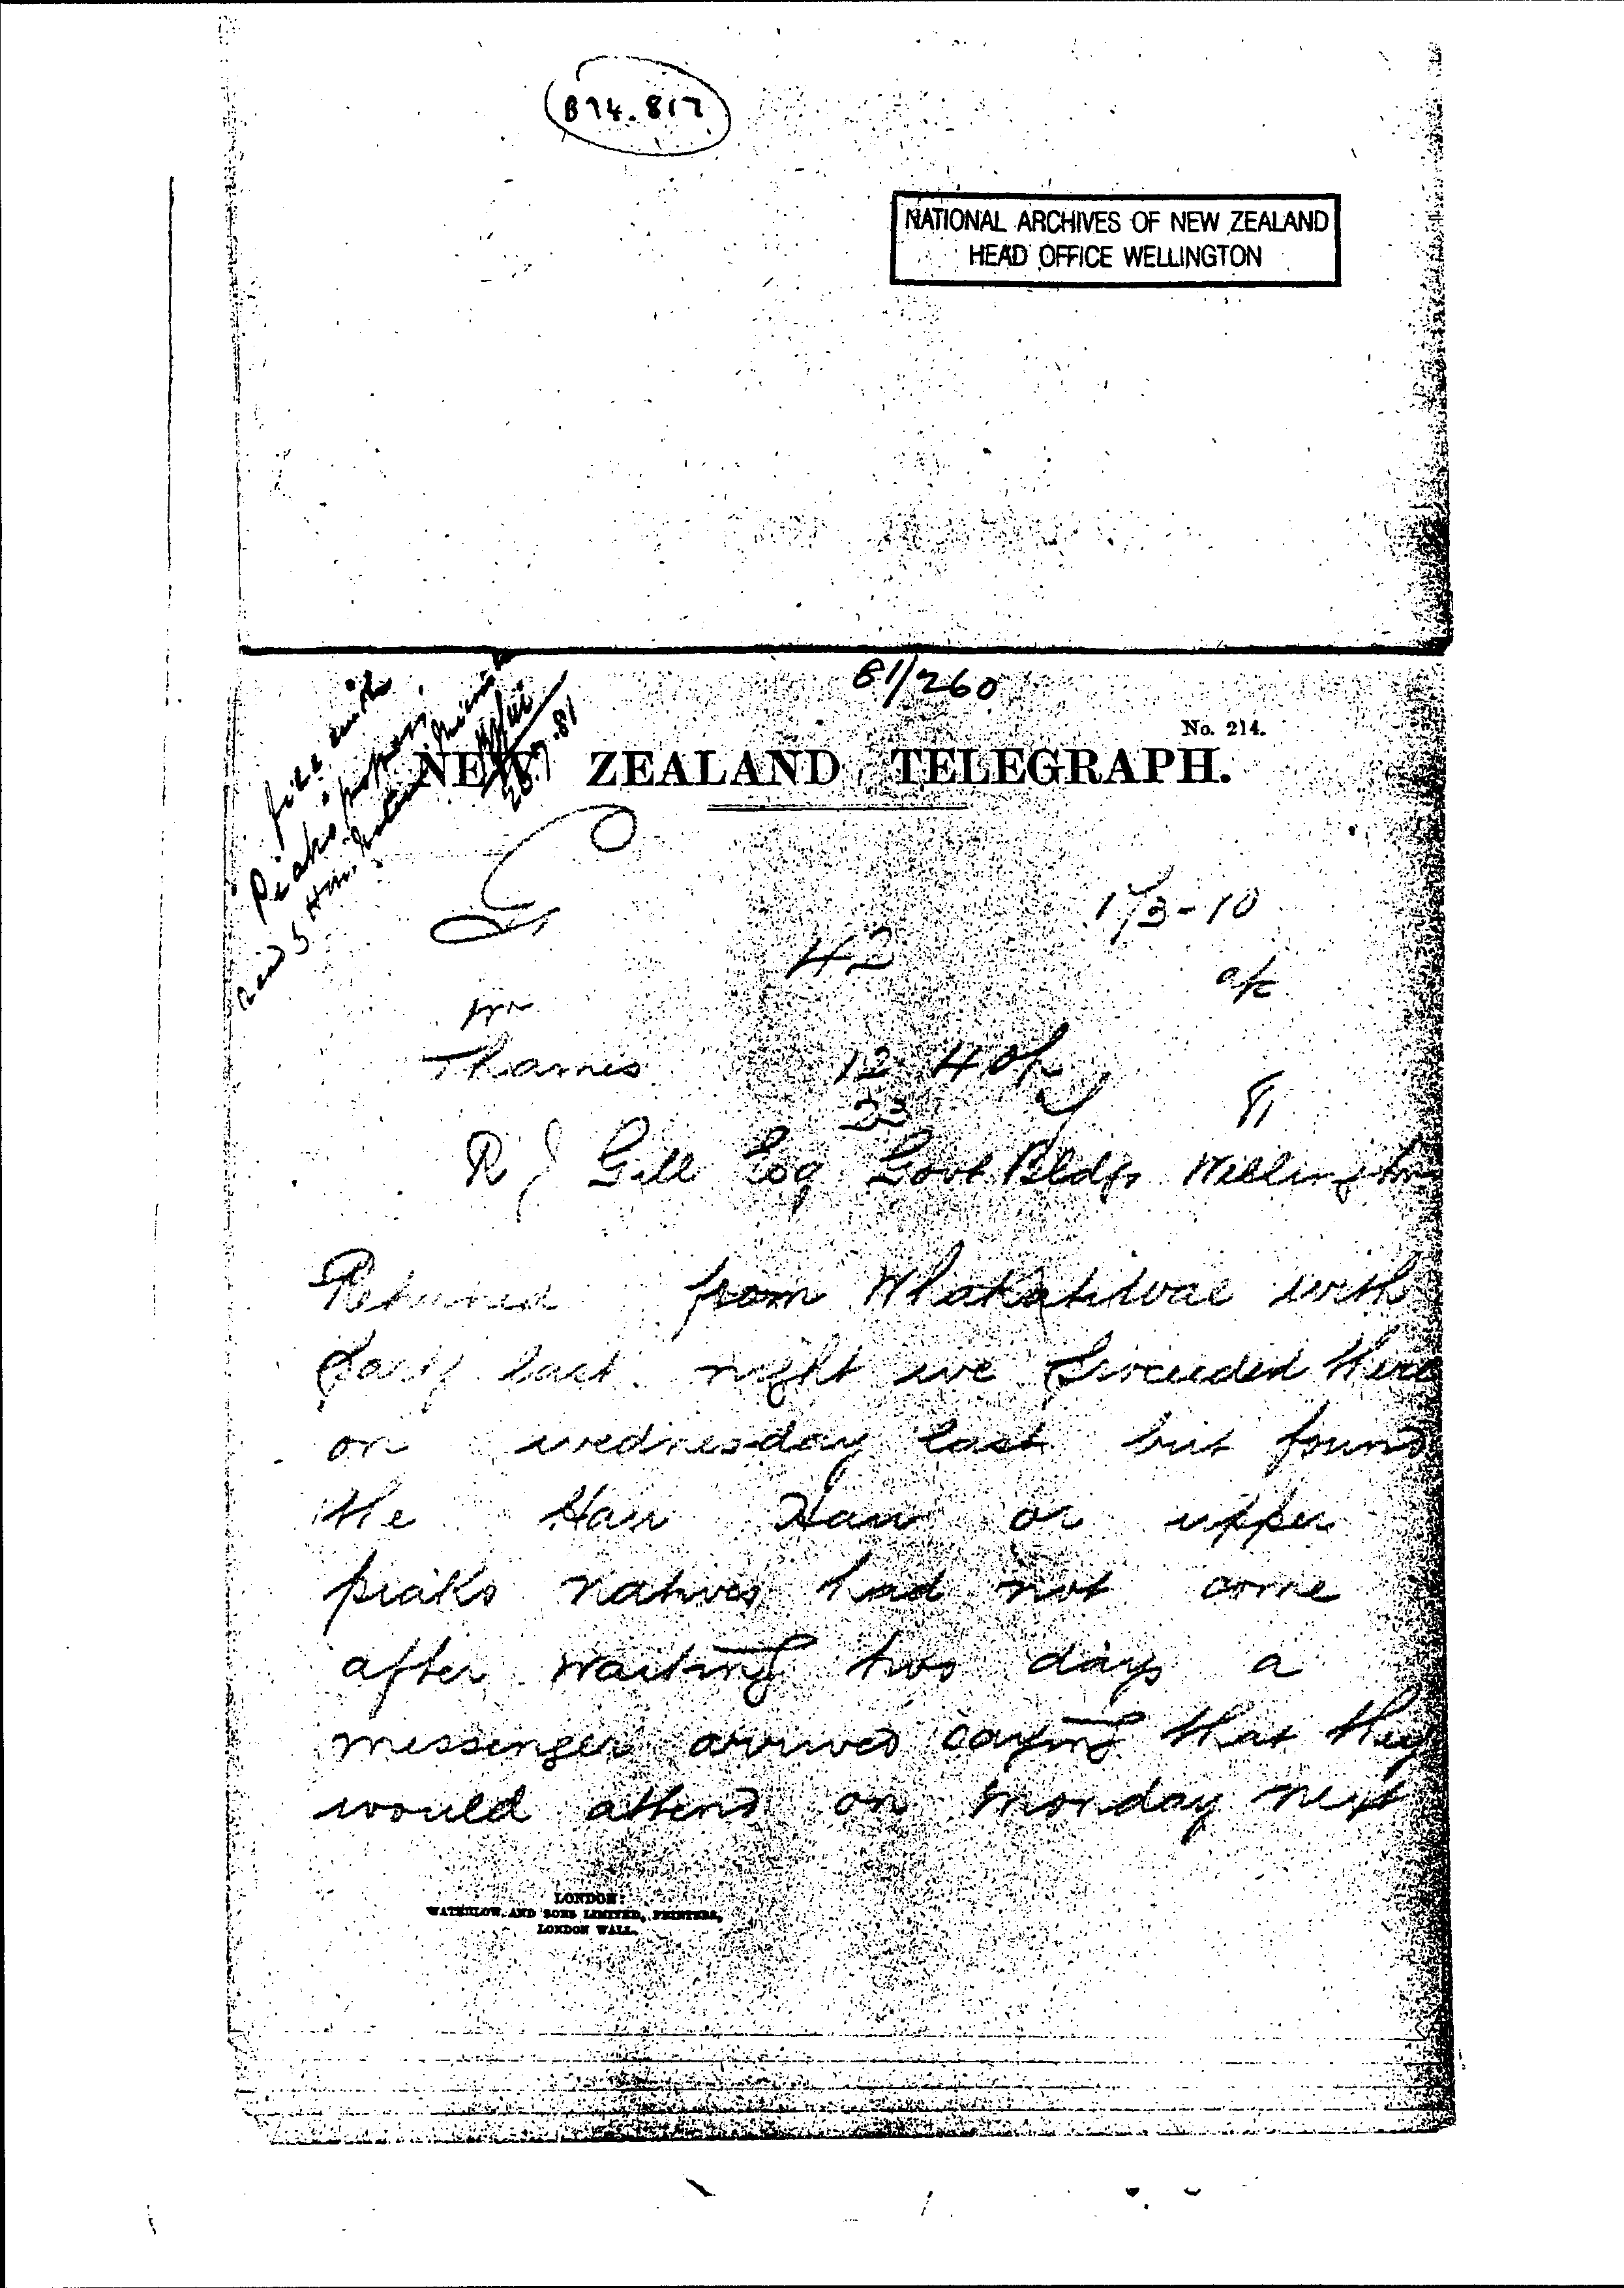 B74.817
NATIONAL ARCHIVES OF NEW ZEALAND
HEAD OFFICE WELLINGTON
81/260
No. 214.
NEW ZEALAND TELEGRAPH.
file with
Piako papers
and Hon. Native
28.7.81
1/3-10
42
Thames
12 40p
23
81
R J Gill Esq Govt Bldgs Wellington
Returned from Whakatiwai with
party last night we proceeded there
on wednesday last but found
the Hau Hau or upper
piako natives had not come
after waiting two days a
messenger arrived saying that they
would attend on monday next
LONDON:
WATERLOW AND SONS LIMITED, PRINTERS,
LONDON WALL.